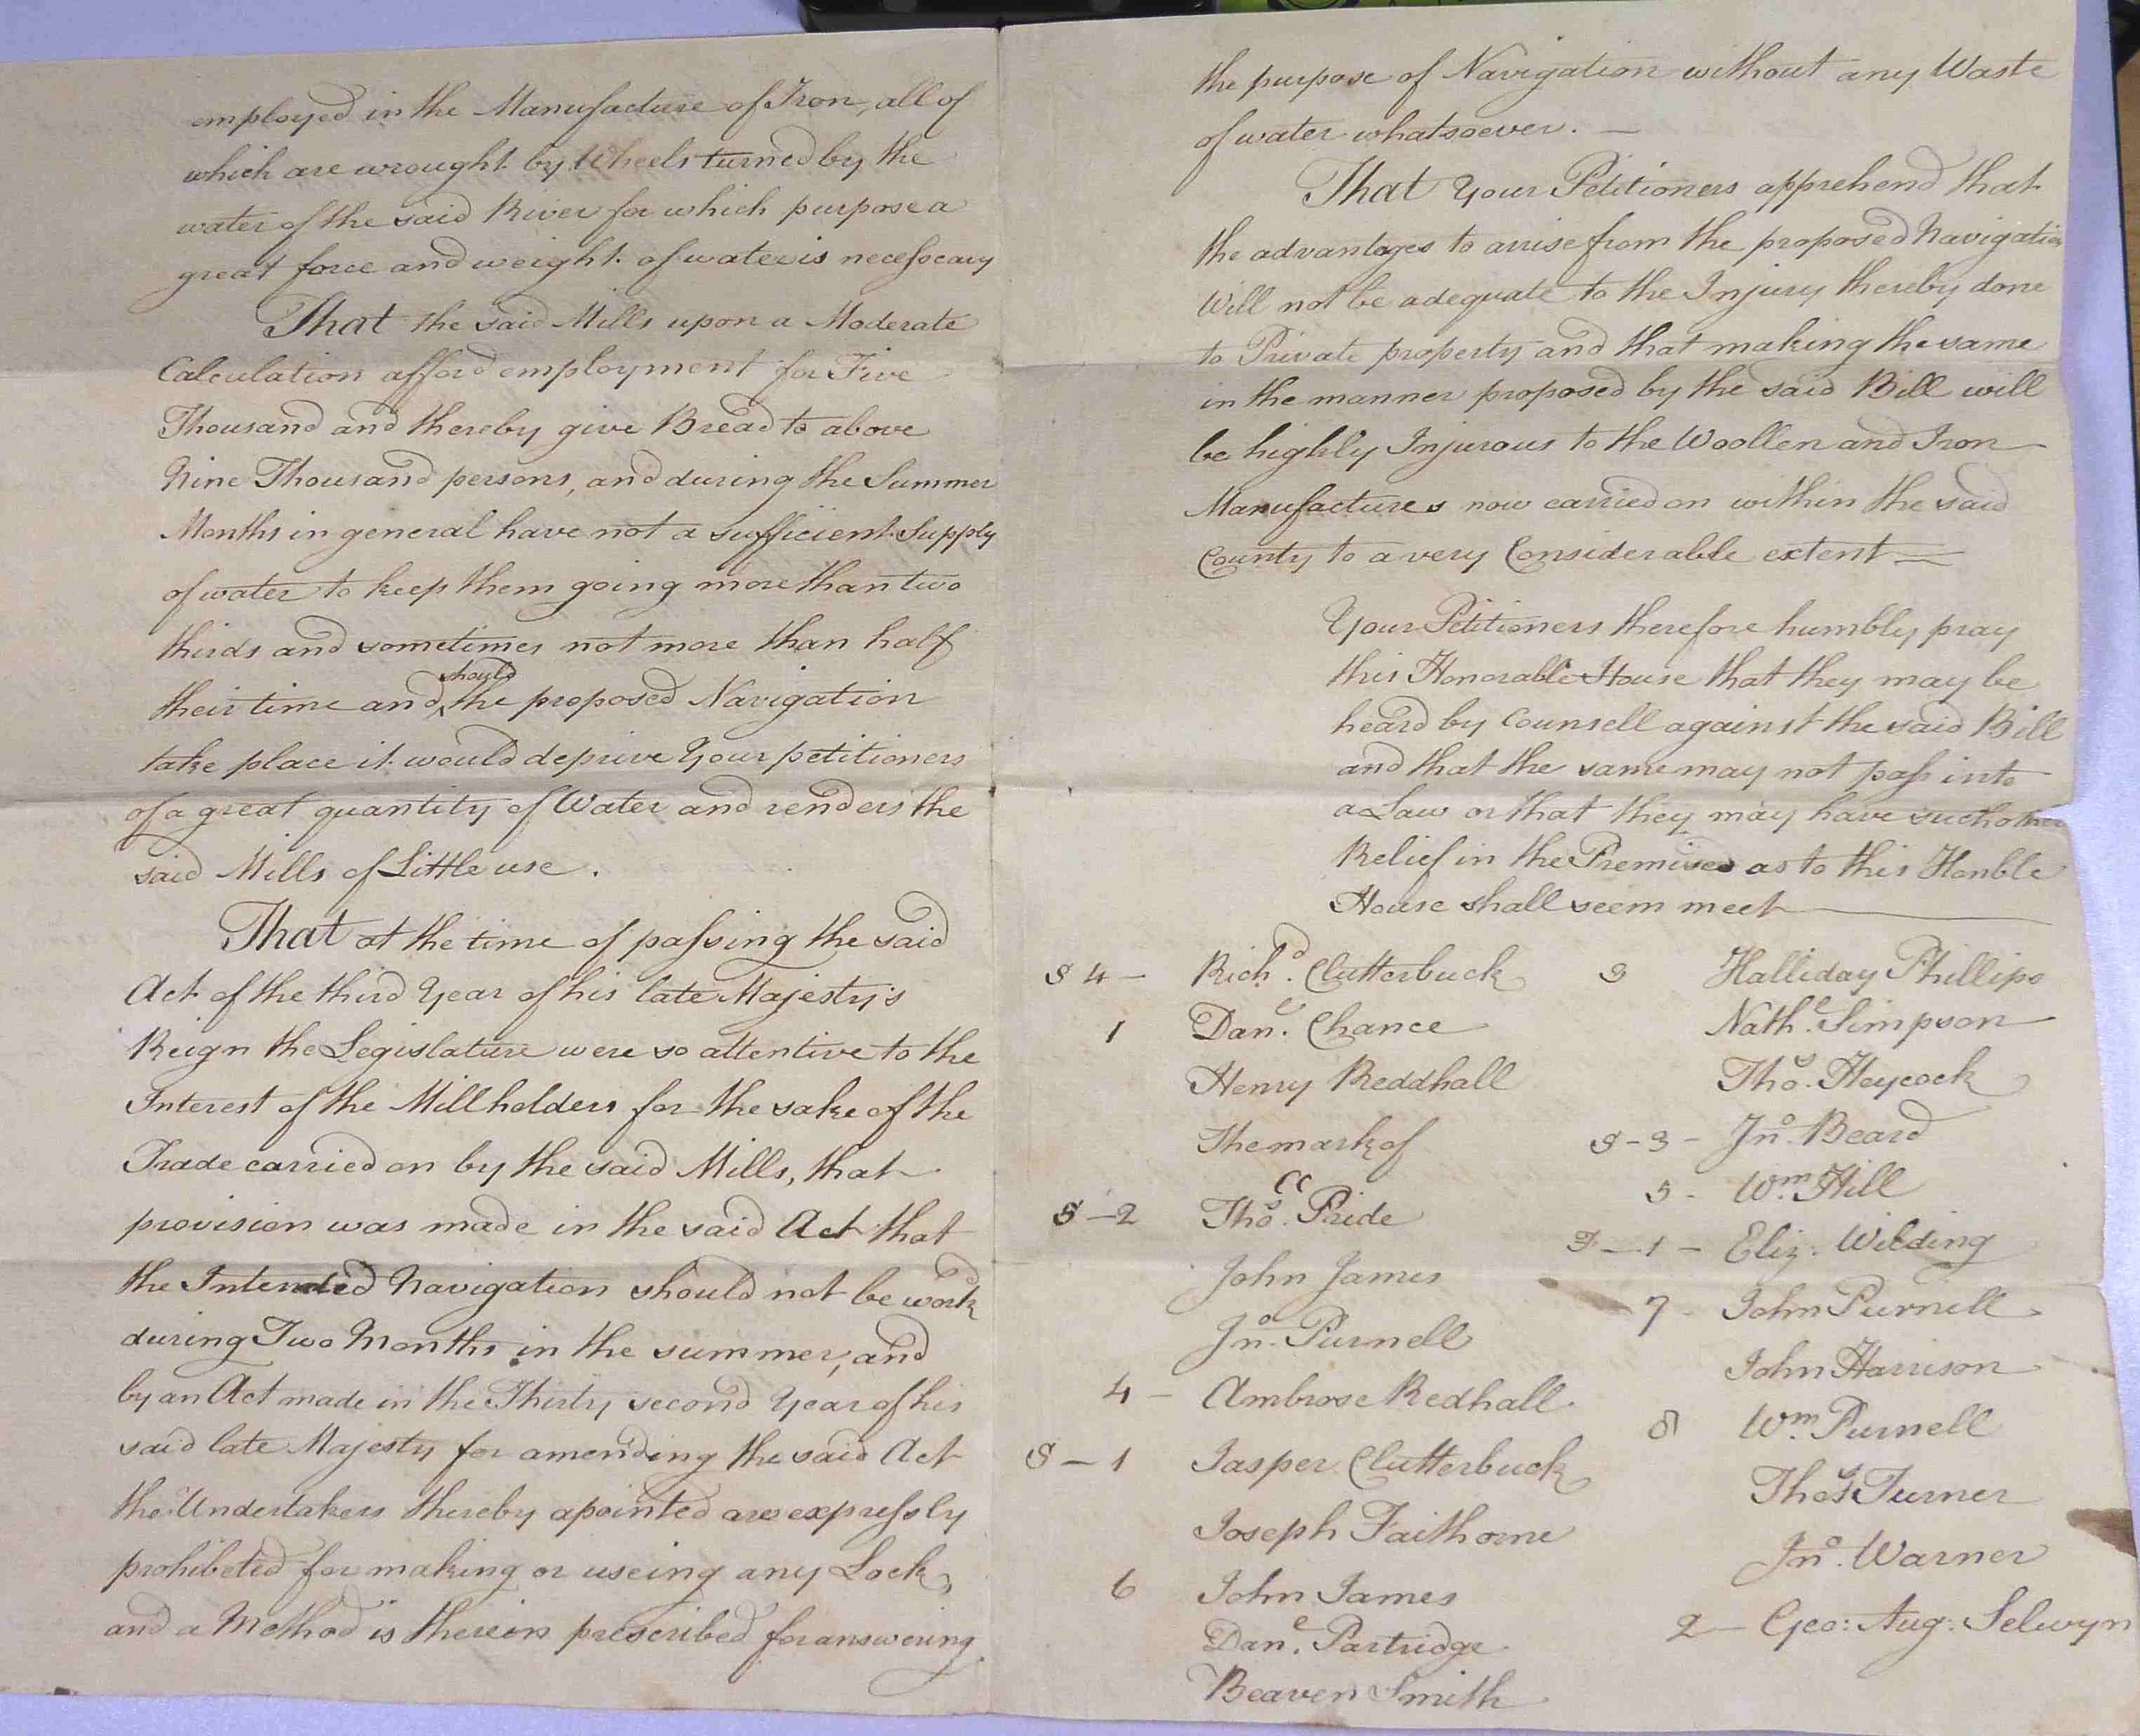 employed in the Manufacture of Iron, all of
which are wrought by Wheels turned by the
water of the said River for which purpose a
great force and weight of water is necessary
That the said Mills upon a Moderate
Calculation afford employment for Five
Thousand and thereby give Bread to above
Nine Thousand persons, and during the Summer
Months in general have not a sufficient Supply
of water to keep them going more than two
thirds and sometimes not more than half
their time and should the proposed Navigation
take place it would deprive Your petitioners
of a great quantity of Water and renders the
said Mills of Little use.
That at the time of passing the said
Act of the third Year of his late Majesty's
Reign the Legislature were so attentive to the
Interest of the Millholders for the sake of the
Trade carried on by the said Mills, that
provision was made in the said Act that
the Intended Navigation should not be work'd
during Two Months in the summer, and
by an Act made in the Thirty second Year of his
said late Majesty for amending the said Act
the Undertakers thereby apointed are expressly
prohibeted for making or useing any Lock,
and a Method is therein prescribed for answering
the purpose of Navigation without any Waste
of water whatsoever. —
That Your Petitioners apprehend that
the advantages to arrise from the proposed Navigation
Will not be adequate to the Injury thereby done
to Private property and that making the same
in the manner proposed by the said Bill will
be highly Injurous to the Woollen and Iron
Manufactures now carried on within the said
County to a very Considerable extent —
Your Petitioners therefore humbly pray
this Honorable House that they may be
heard by Counsell against the said Bill
and that the same may not pass into
a Law or that they may have such other
Relief in the Premises as to this Honble
House shall seem meet
S 4 — Richd. Clutterbuck
1 Danl. Chance
Henry Reddhall
The mark of
CC
S — 2 Thos. Pride
John James
Jno. Purnell
4 — Ambrose Redhall
S — 1 Jasper Clutterbuck
Joseph Faithorne
6 John James
Danl. Partridge
Beaven Smith
3 Halliday Phillips
Nathl. Simpson
Thos. Heycock
S - 3 - Jno. Beard
5 - Wm. Hill
F — 1 — Eliz: Wilding
7 - John Purnell
John Harrison
8 Wm. Purnell
Thos. Turner
Jno. Warner
2 — Geo: Aug: Selwyn